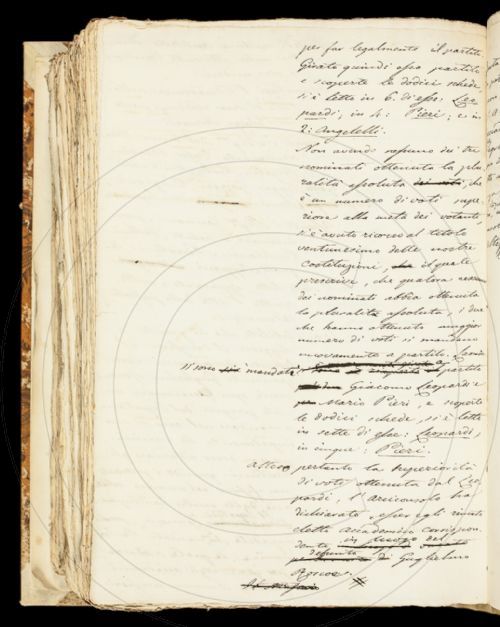 per far legalmente il partito.
Girato quindi esso partito
e scoperte le dodici schede,
si è letto in 6. di esse: Leo-
pardi; in 4: Pieri; e in
2: Angelelli.
Non avendo nessuno dei tre
nominati ottenuto la plu-
ralità assoluta dei voti, che
è un numero di voti supe-
riore alla metà dei votanti,
si è avuto ricorso al titolo
ventunesimo delle nostre
Costituzioni, il quale
prescrive, che qualora nessuno
dei nominati abbia ottenuta
la pluralità assoluta, i due
che hanno ottenuto maggior
numero di voti si mandino
nuovamente a partito.
si sono mandati a partito
Giacomo Leopardi e
Mario Pieri, e scoperte
le dodici schede, si è letto
in sette di esse: Leopardi,
in cinque: Pieri.
Atteso pertanto la superiorità
di voti ottenuta dal Leo-
pardi, l'arciconsolo ha
dichiarato, esser egli rimasto
eletto accademico corrispon-
dente in luogo del
defunto Guglielmo
Roscoe.